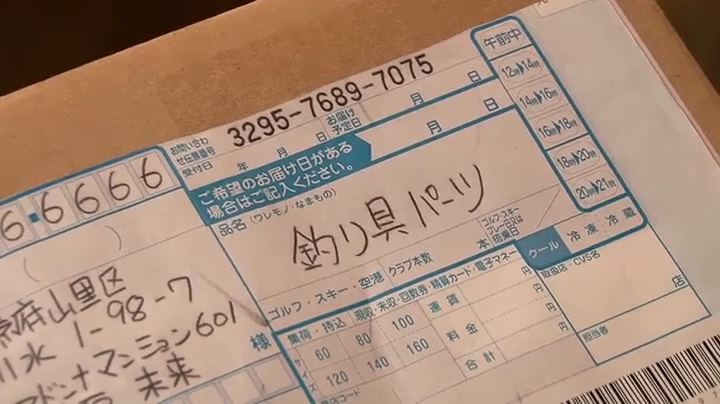 お問い合わせ伝票番号 3295-7689-7075
受付日 年 月 日 お届け予定日 月 日
ご希望のお届け日がある 月 日
場合はご記入ください。
午前中
12時▶14時
14時▶16時
16時▶18時
18時▶20時
20時▶21時
6-6666
品名 (ワレモノ・なまもの)
釣り具パーツ
( )
ゴルフ・スキー・空港 クラブ本数 本
ゴルフ・スキー
プレー日又は
搭乗日
クール 冷凍 冷蔵
府山里区
水 1-98-7
マンション601
未来
様
集荷・持込 現収・未収・回数券・精算カード・電子マネー
サイズ
60 80 100
120 140 160
運賃 円
料金 円
合計 円
取扱店・CVS名
店
担当者